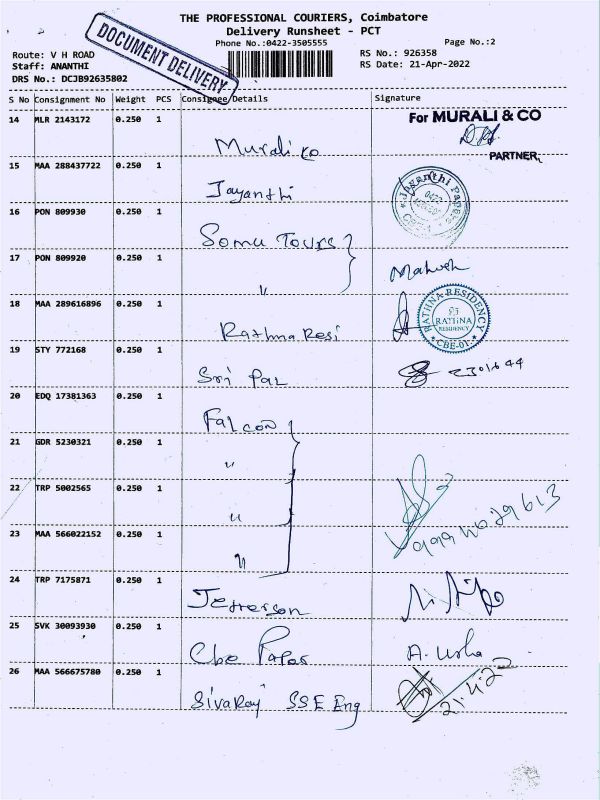 THE PROFESSIONAL COURIERS, Coimbatore
Delivery Runsheet - PCT
Phone No.:0422-3505555
Page No.:2
DOCUMENT DELIVERY
Route: V H ROAD
Staff: ANANTHI
DRS No.: DCJB92635802
RS No.: 926358
RS Date: 21-Apr-2022
S No Consignment No Weight PCS Consignee/Details Signature
14 MLR 2143172 0.250 1 Murali co For MURALI & CO
PARTNER.
15 MAA 288437722 0.250 1 Jayanthi
16 PON 809930 0.250 1 Somu Tours
17 PON 809920 0.250 1 " Mahesh
18 MAA 289616896 0.250 1 Rathna Resi RATHNA RESIDENCY CBE-01.
19 STY 772168 0.250 1 Sri Pal 2301644
20 EDQ 17381363 0.250 1 Falcon
21 GDR 5230321 0.250 1 "
22 TRP 5002565 0.250 1 "
23 MAA 566022152 0.250 1 "
24 TRP 7175871 0.250 1 Jefferson
25 SVK 30093930 0.250 1 Cbe Paper A. Usha
26 MAA 566675780 0.250 1 Sivaraj SSE Eng 21.4.22